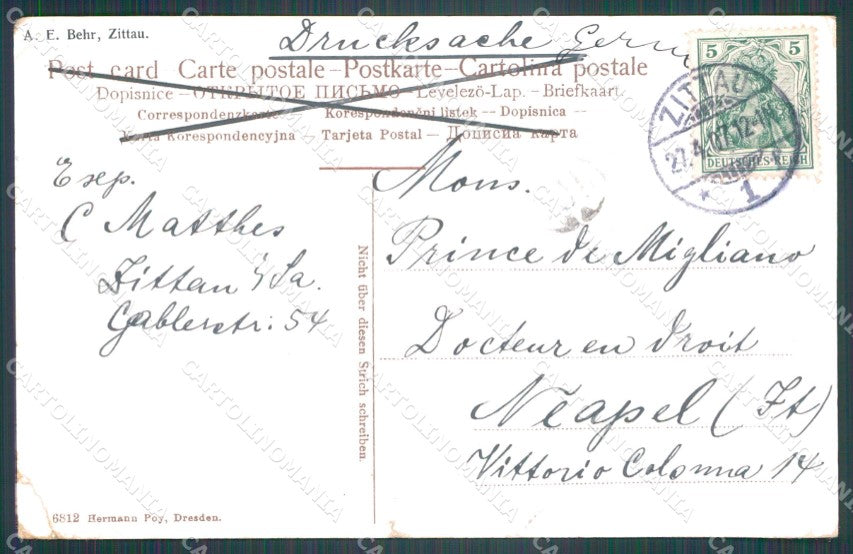 A. E. Behr, Zittau.
Drucksache Germ
Post card Carte postale – Postkarte – Cartolina postale
Dopisnice – ОТКРЫТОЕ ПИСЬМО – Levelező-Lap. – Briefkaart.
Correspondenzkarte Korespondenční listek – Dopisnica –
Karta korespondencyjna Tarjeta Postal – Дописна карта
5 5
DEUTSCHES REICH
ZITTAU
27.4.07. 12-1N.
* 1
Exp.
C Matthes
Zittau i/Sa.
Gablerstr: 54
Nicht über diesen Strich schreiben.
Mons.
Prince de Migliano
Docteur en droit
Neapel (It)
Vittorio Colonna 14
6812 Hermann Poy, Dresden.
CARTOLINOMANIA